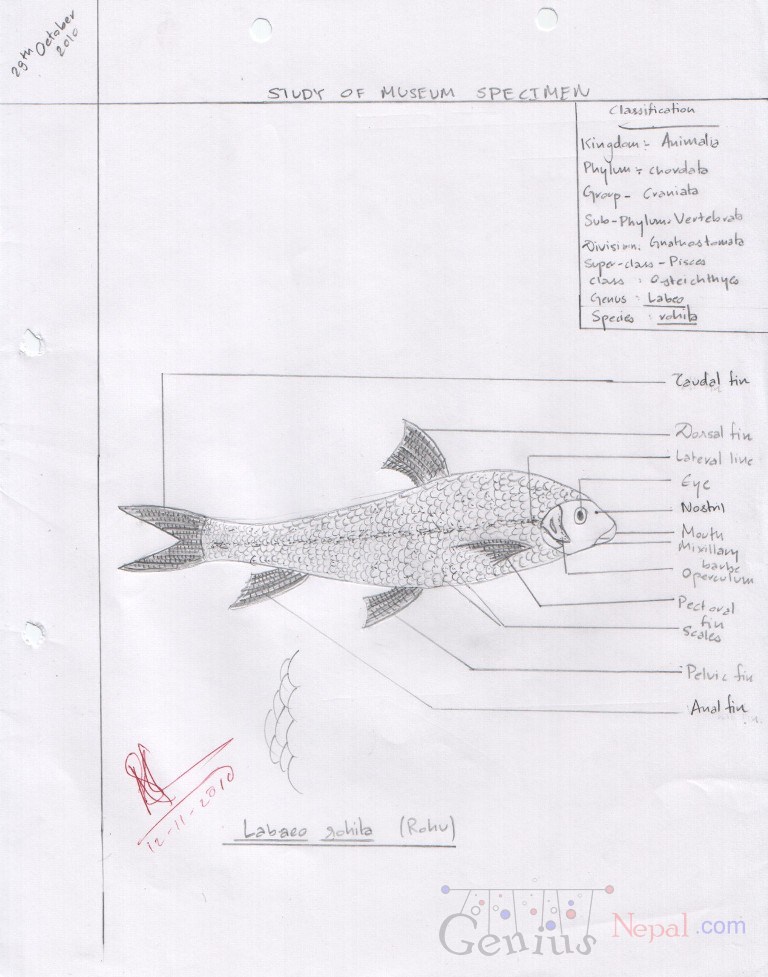 29th October
2010
STUDY OF MUSEUM SPECIMEN
Classification
Kingdom:- Animalia
Phylum:- chordata
Group- Craniata
Sub-Phylum:Vertebrata
Division: Gnathostomata
Super-class-Pisces
class : Osteichthyes
Genus : Labeo
Species : rohita
Caudal fin
Dorsal fin
Lateral line
Eye
Nostril
Mouth
Mixillary
barbe
Operculum
Pectoral
fin
Scales
Pelvic fin
Anal fin
12-11-2010
Labaeo rohita (Rohu)
Genius Nepal.com